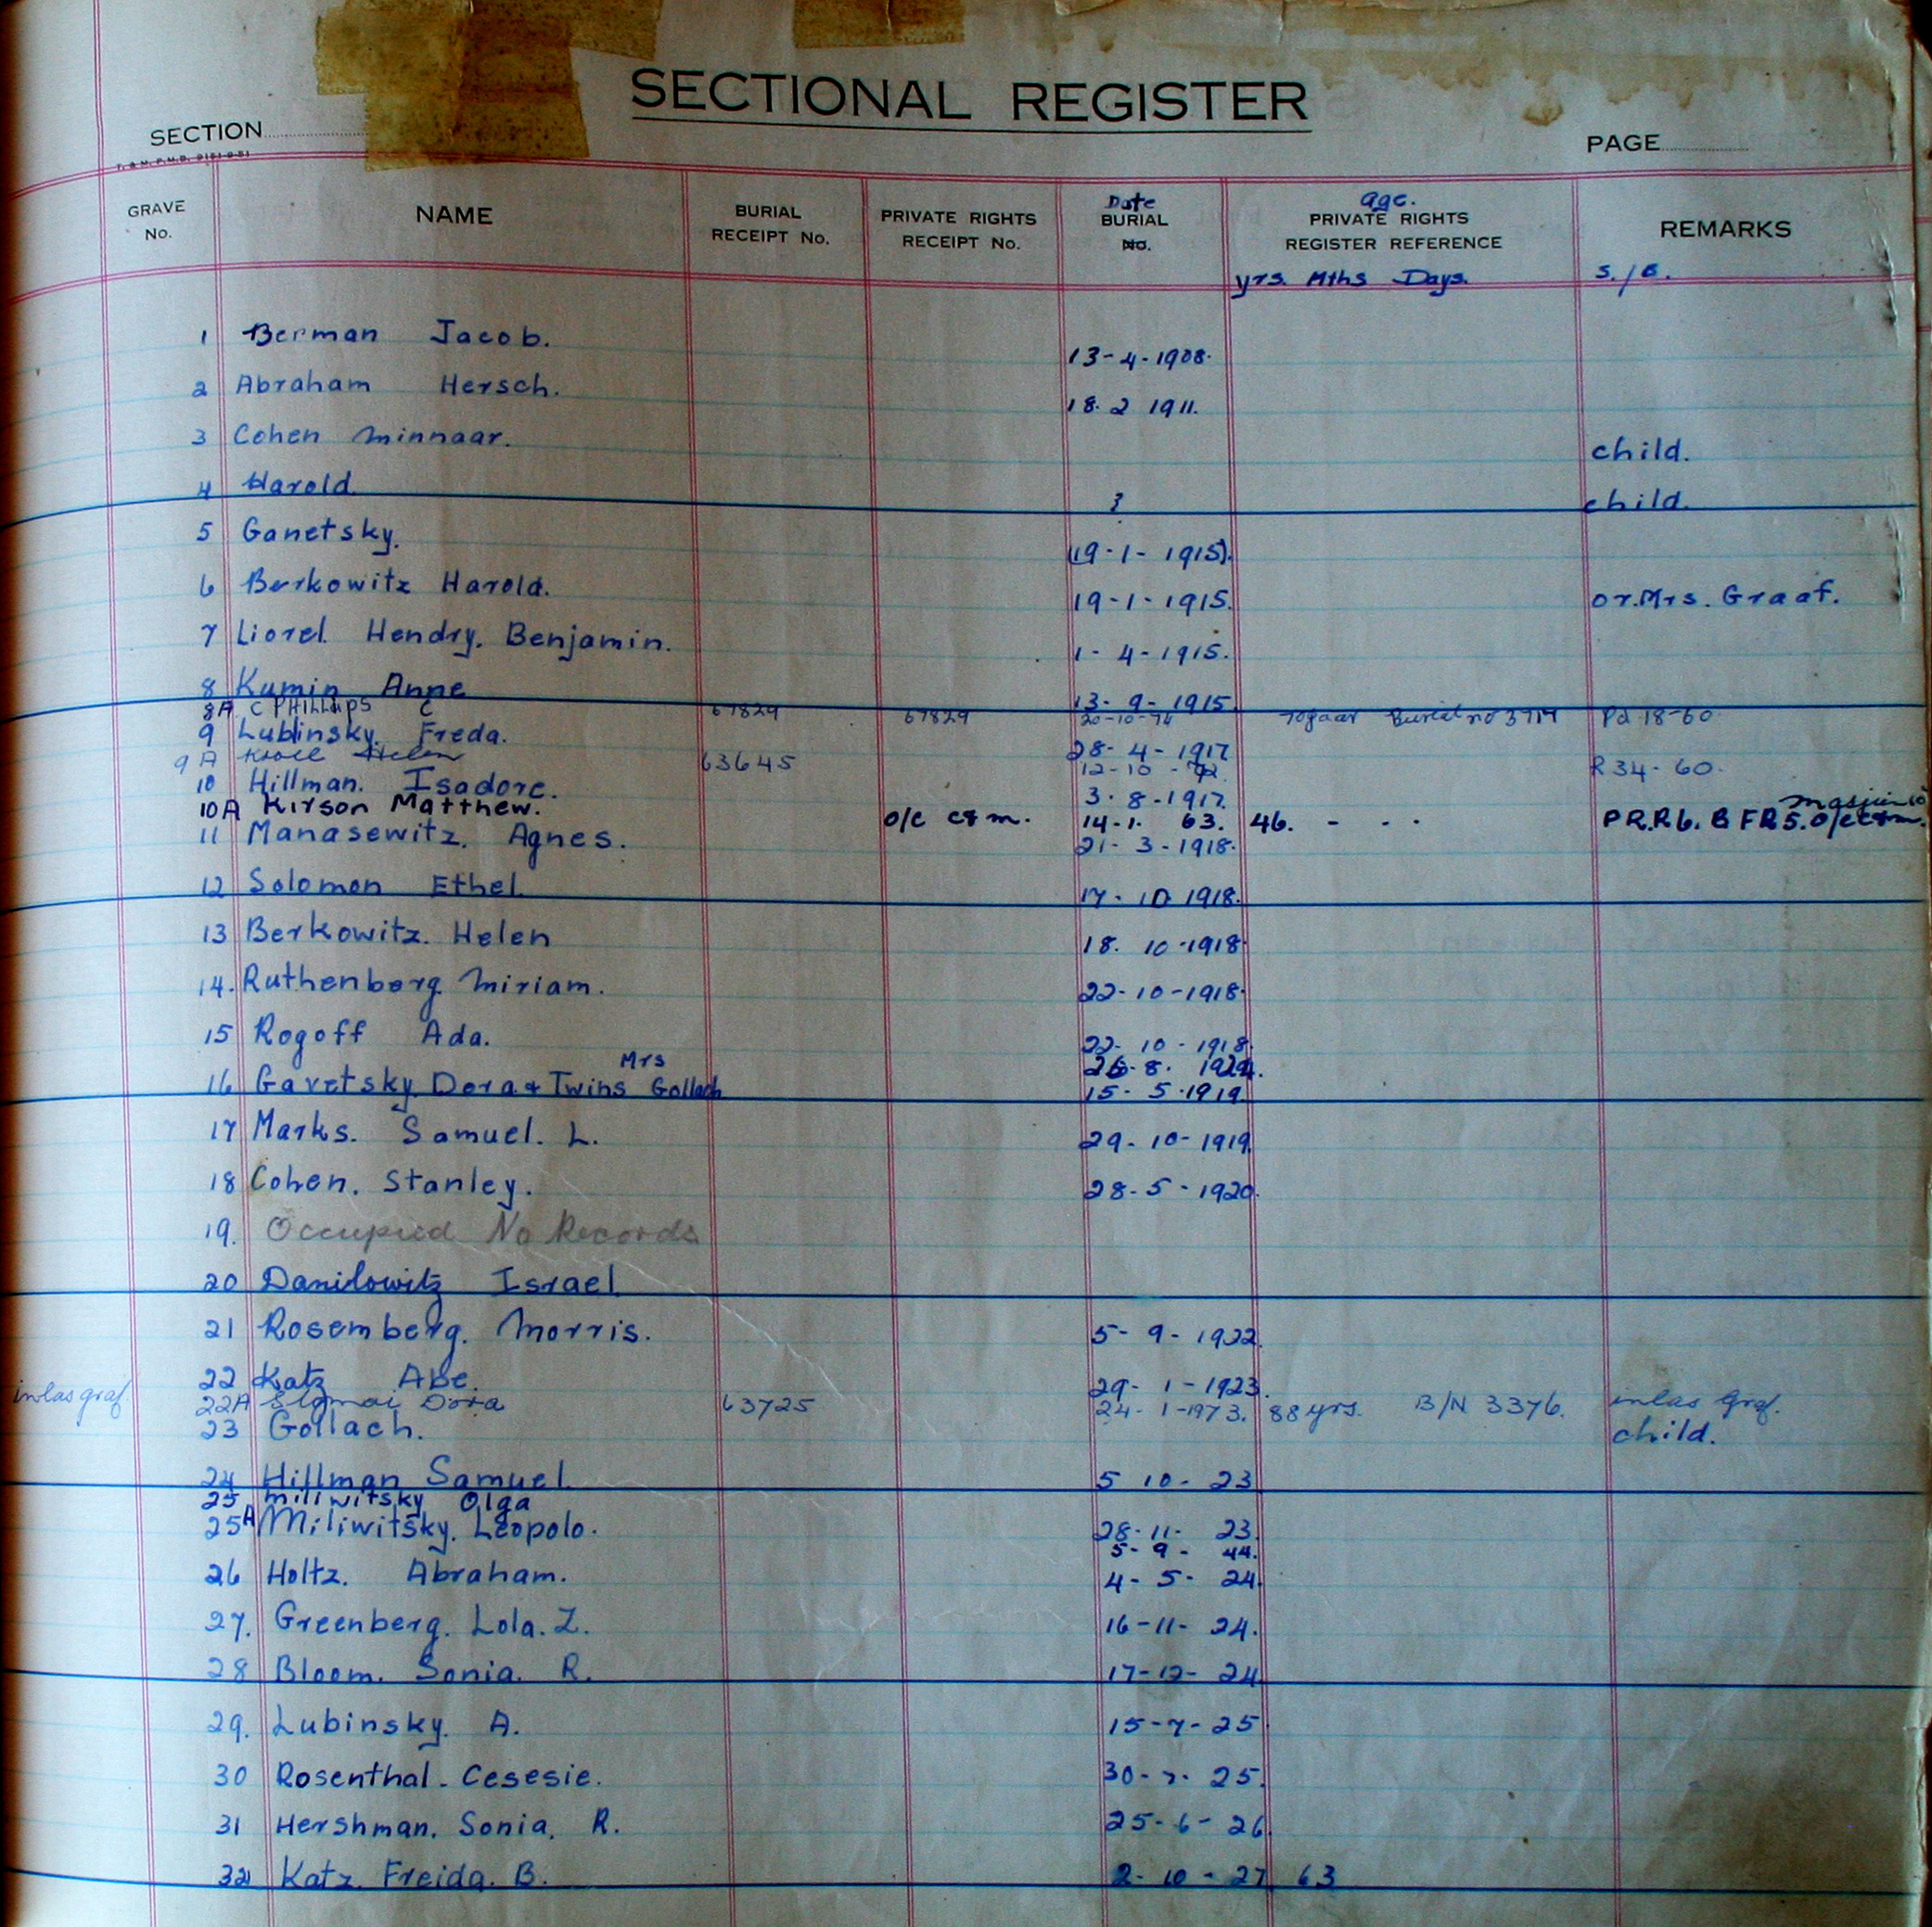 SECTIONAL REGISTER
SECTION
PAGE
T. & M. P.M.B. 9151-9-51
GRAVE No. NAME BURIAL RECEIPT No. PRIVATE RIGHTS RECEIPT No. Date BURIAL No. age. PRIVATE RIGHTS REGISTER REFERENCE REMARKS
yrs. Mths Days. S./B.
1 Berman Jacob. 13-4-1908.
2 Abraham Hersch. 18.2 1911.
3 Cohen Minnaar. child.
4 Harold ? child.
5 Ganetsky. (19-1-1915).
6 Berkowitz Harold. 19-1-1915. or Mrs. Graaf.
7 Liorel Hendry. Benjamin. 1-4-1915.
8 Kumin Anne 13-9-1915.
8A C PHILLIPS C 67829 67829 20-10-74 70jaar Burial no 3717 Pd 18-60
9 Lublinsky. Freda. 28-4-1917
9A Helen 63645 12-10-72 R34-60.
10 Hillman. Isadore. 3.8-1917.
10A Kirson Matthew. o/c c&m. 14-1. 63. 46. - - . P.R.R 6. B F R 5. o/c c&m.
11 Manasewitz. Agnes. 21-3-1918.
12 Solomon Ethel 17.10 1918.
13 Berkowitz. Helen 18.10-1918
14. Ruthenberg Miriam. 22-10-1918.
15 Rogoff Ada. 22-10-1918
Mrs 26-8. 1924.
16 Gavetsky Dora & Twins Gollach 15-5-1919
17 Marks. Samuel. L. 29-10-1919.
18 Cohen. Stanley. 28-5-1920.
19. Occupied No Records
20 Danilowitz Israel
21 Rosemberg. Morris. 5-9-1922.
22 Katz Abe. 29-1-1923.
inlas graf. 22A Dora 63725 24-1-1973. 88 yrs. B/N 3376. inlas Graf.
23 Gollach. child.
24 Hillman Samuel 5 10-23
25 Miliwitsky Olga
25A Miliwitsky. Leopolo. 28-11-23.
5-9-44.
26 Holtz. Abraham. 4-5-24.
27. Greenberg. Lola. Z. 16-11-24.
28 Bloom. Sonia. R. 17-12-24
29. Lubinsky. A. 15-7-25
30 Rosenthal - Cesesie. 30-7-25.
31 Hershman. Sonia. R. 25-6-26.
32 Katz Freida. B. 2-10-27 63